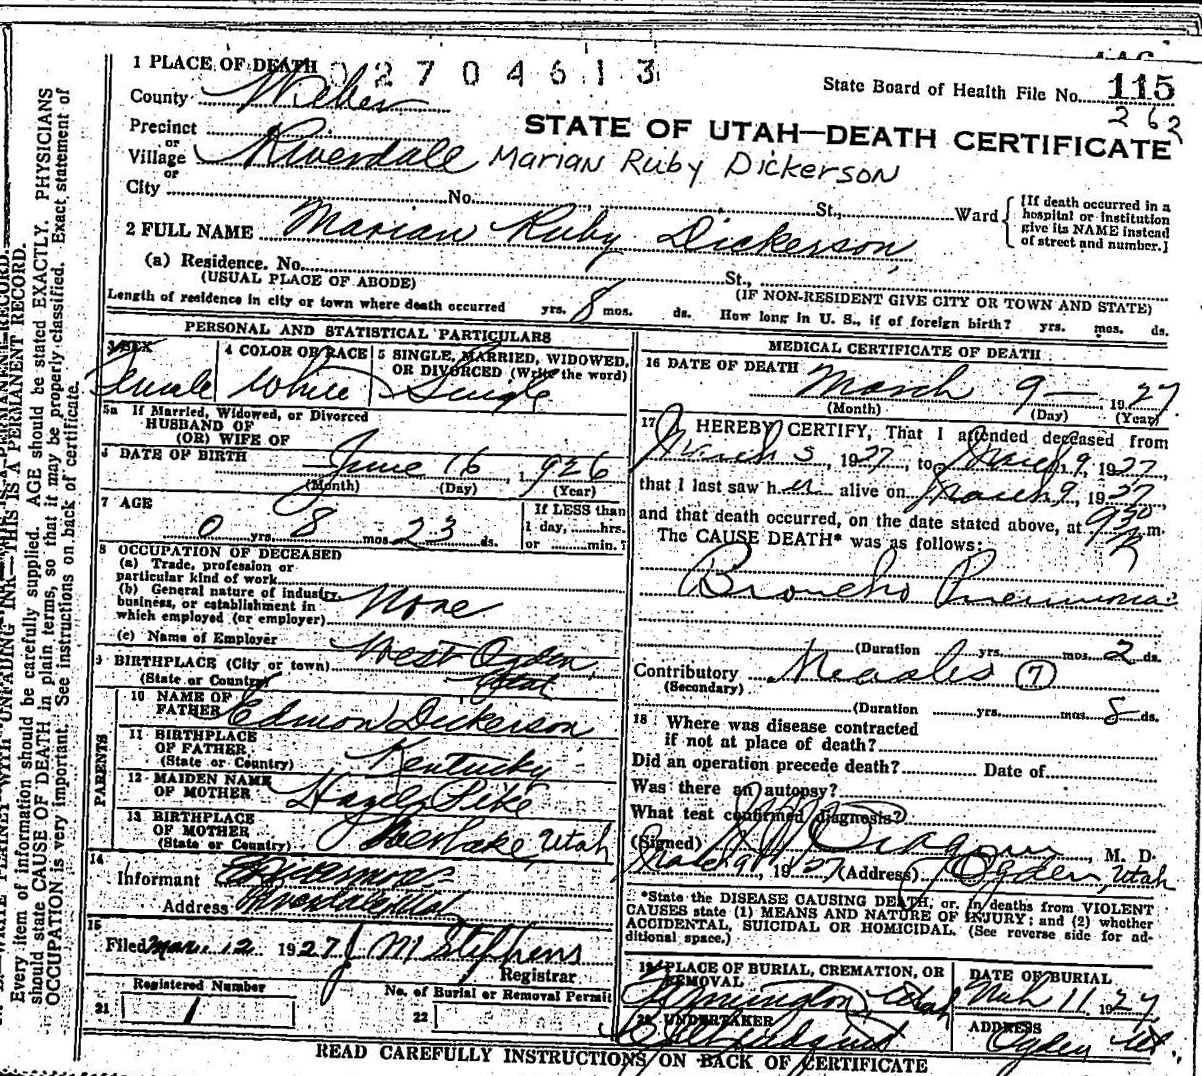 1 PLACE OF DEATH 02704613
State Board of Health File No. 115
262
County Weber
STATE OF UTAH—DEATH CERTIFICATE
Precinct
or
Village Riverdale Marian Ruby Dickerson
or
City No. St., Ward
[If death occurred in a
hospital or institution
give its NAME instead
of street and number.]
2 FULL NAME Marian Ruby Dickerson,
(a) Residence. No. St.,
(USUAL PLACE OF ABODE) (IF NON-RESIDENT GIVE CITY OR TOWN AND STATE)
Length of residence in city or town where death occurred yrs. 8 mos. ds. How long in U. S., if of foreign birth? yrs. mos. ds.
PERSONAL AND STATISTICAL PARTICULARS
3 SEX 4 COLOR OR RACE 5 SINGLE, MARRIED, WIDOWED,
OR DIVORCED (Write the word)
Female White Single
5a If Married, Widowed, or Divorced
HUSBAND OF
(OR) WIFE OF
6 DATE OF BIRTH June 16, 1926
(Month) (Day) (Year)
7 AGE If LESS than
1 day, hrs.
0 yrs. 8 mos. 23 ds. or min.?
8 OCCUPATION OF DECEASED
(a) Trade, profession or
particular kind of work
(b) General nature of industry,
business, or establishment in
which employed (or employer) None
(c) Name of Employer
9 BIRTHPLACE (City or town) West Ogden,
(State or Country) Utah
PARENTS
10 NAME OF
FATHER Edmon Dickerson
11 BIRTHPLACE
OF FATHER
(State or Country) Kentucky
12 MAIDEN NAME
OF MOTHER Hazel Pike
13 BIRTHPLACE
OF MOTHER
(State or Country) Utah
14
Informant
Address Riverdale Utah
15
Filed Mar. 12 1927 J M Stephens
Registrar
Registered Number No. of Burial or Removal Permit
21 1 22
MEDICAL CERTIFICATE OF DEATH
16 DATE OF DEATH
March 9— 1927
(Month) (Day) (Year)
17 I HEREBY CERTIFY, That I attended deceased from
March 5, 1927, to March 9, 1927,
that I last saw her alive on March 9, 1927,
and that death occurred, on the date stated above, at 9 30 m.
The CAUSE DEATH* was as follows:
Broncho Pneumonia
(Duration yrs. mos. 2 ds.
Contributory Measles (7)
(Secondary)
(Duration yrs. mos. 8 ds.
18 Where was disease contracted
if not at place of death?
Did an operation precede death? Date of
Was there an autopsy?
What test confirmed diagnosis?
(Signed) M. D.
March 9, 1927 (Address) Ogden, Utah
*State the DISEASE CAUSING DEATH, or, in deaths from VIOLENT
CAUSES state (1) MEANS AND NATURE OF INJURY; and (2) whether
ACCIDENTAL, SUICIDAL OR HOMICIDAL. (See reverse side for ad-
ditional space.)
19 PLACE OF BURIAL, CREMATION, OR
REMOVAL
DATE OF BURIAL
Utah Mch 11 1927
20 UNDERTAKER ADDRESS
Ogden Ut.
READ CAREFULLY INSTRUCTIONS ON BACK OF CERTIFICATE
WRITE PLAINLY WITH UNFADING INK—THIS IS A PERMANENT RECORD.
Every item of information should be carefully supplied. AGE should be stated EXACTLY. PHYSICIANS
should state CAUSE OF DEATH in plain terms, so that it may be properly classified. Exact statement of
OCCUPATION is very important. See instructions on back of certificate.